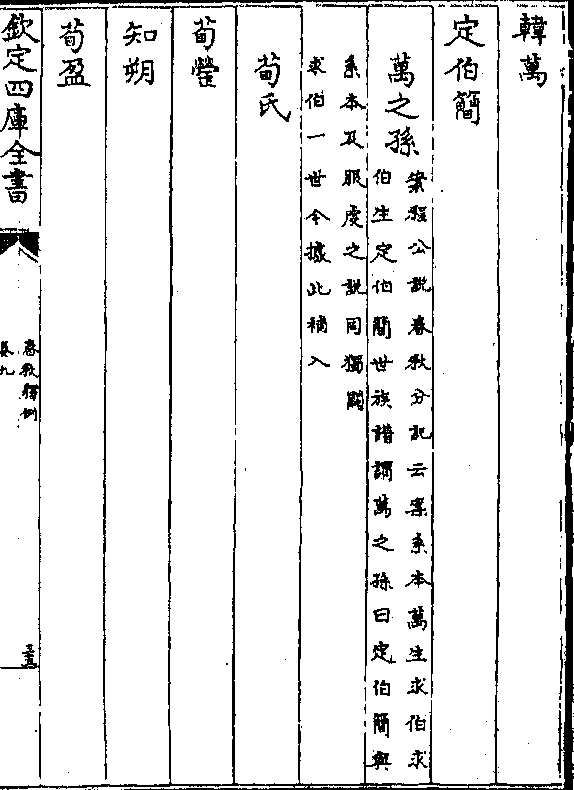 韓萬
定伯簡
萬之孫
案程公説春秋分記云案系本萬生求伯求
伯生定伯簡世族譜謂萬之孫曰定伯簡與
系本及服虔之説同獨闕
求伯一世今據此補入
荀氏
荀罃
知朔
荀盈
欽定四庫全書
春秋釋例
卷九